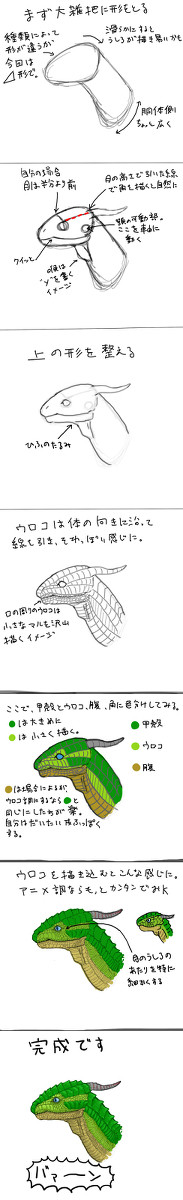 まず大雑把に形をとる
種類によって
形が違うが
今回は
△形で。
滑らかにすると
うしろが描き易いかも
胴体側に
ちょっと広く
自分の場合
目は半分より前
目の高さで引いた線
で角を描くと自然に
顎の可動部。
ここを軸に
動く
クイッと
喉は
"y"を書く
イメージ
上の形を整える
ひふのたるみ
ウロコは体の向きに沿って
線を引き、それっぽい感じに。
口の周りのウロコは
小さなマルを沢山
描くイメージ
ここで、甲殻とウロコ、腹、角に色分けしてみる。
は大きめに
は小さく描く。
甲殻
ウロコ
腹
は場合によるが
ウロコ調にするなら と
同じにした方が楽。
自分はだいたい皮ふっぽく
する。
ウロコを描き込むとこんな感じに。
アニメ調ならもっとカンタンでもOK
目のうしろの
あたりを特に
細かくする
完成です
バァーン